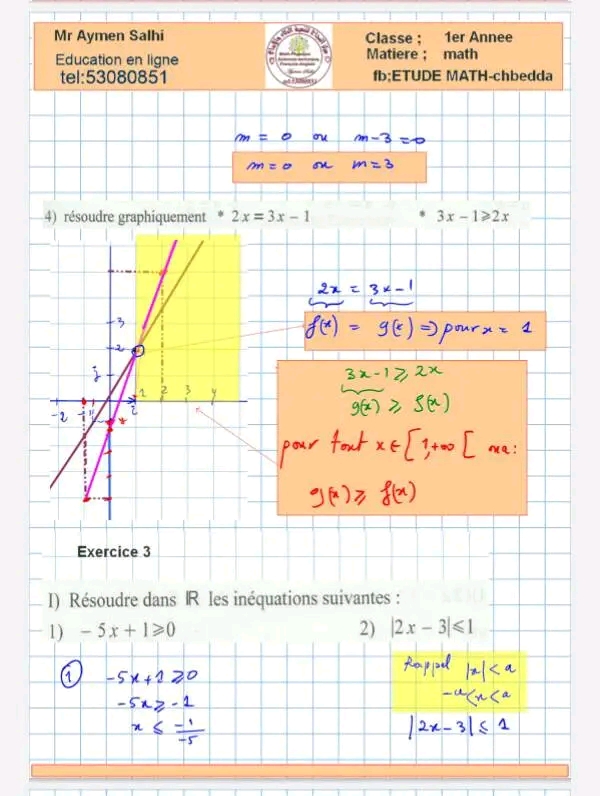 Mr Aymen Salhi
Education en ligne
tel:53080851
Classe ; 1er Annee
Matiere ; math
fb;ETUDE MATH-chbedda
m = 0 ou m-3 = 0
m = 0 ou m = 3
4) résoudre graphiquement * 2x = 3x - 1 * 3x - 1 ⩾ 2x
2x = 3x-1
f(x) = g(x) => pour x = 1
3x-1 ⩾ 2x
g(x) ⩾ f(x)
pour tout x ∈ [1,+∞[ on a:
g(x) ⩾ f(x)
3
2
j
-2 -1 i 1 2 3 4
Exercice 3
I) Résoudre dans ℝ les inéquations suivantes :
1) - 5x + 1 ⩾ 0 2) |2x - 3| ⩽ 1
1 -5x+1 ⩾ 0
-5x ⩾ -1
x ⩽ -1/-5
Rappel |x| < a
-a < x < a
|2x-3| ⩽ 1